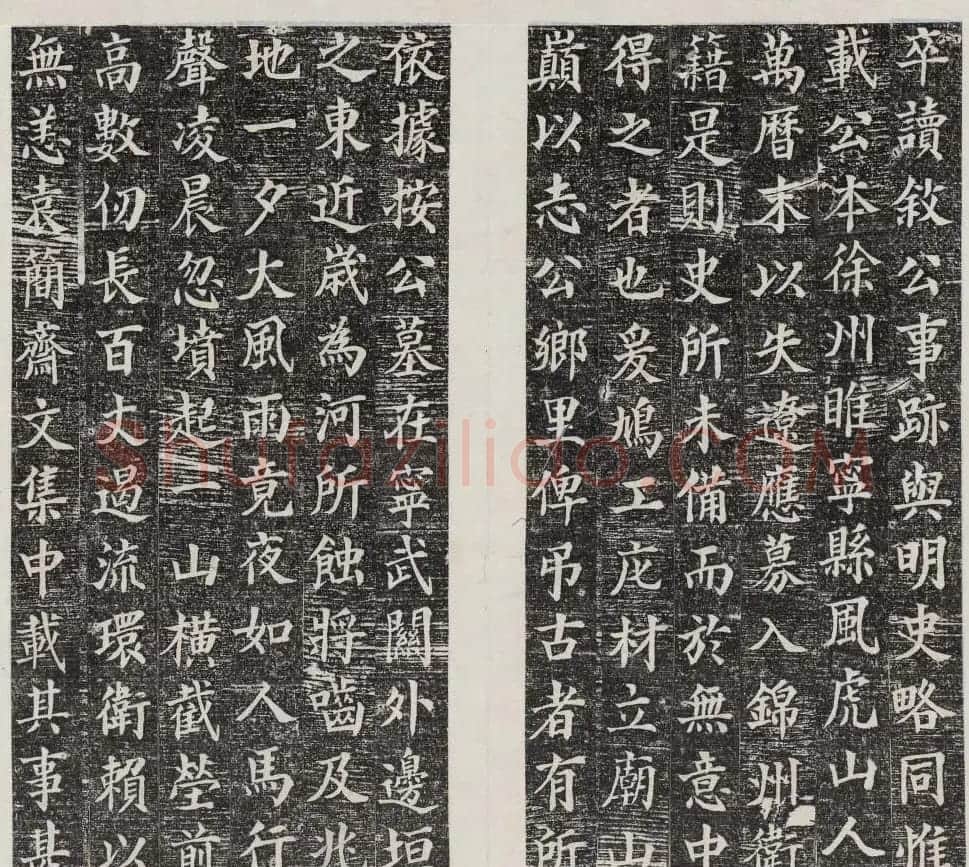 卒讀敘公事跡與明史略同惟
載公本徐州睢寧縣風虎山人
萬曆末以失遼應募入錦州衛
籍是則史所未備而於無意中
得之者也爰鳩工庀材立廟山
巔以志公鄉里俾弔古者有所
依據按公墓在寧武關外邊垣
之東近歲為河所蝕將齧及兆
地一夕大風雨竟夜如人馬行
聲凌晨忽墳起一山橫截塋前
高數仞長百丈遏流環衛賴以
無恙袁簡齋文集中載其事甚
Shufaziliao.COM